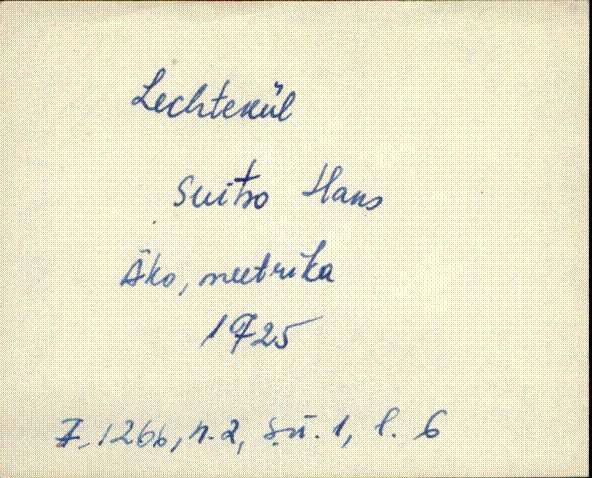 Lechtekül
Suitso Hans
Äko, meetrika
1725
F. 1266, n. 2, s.ü. 1, l. 6